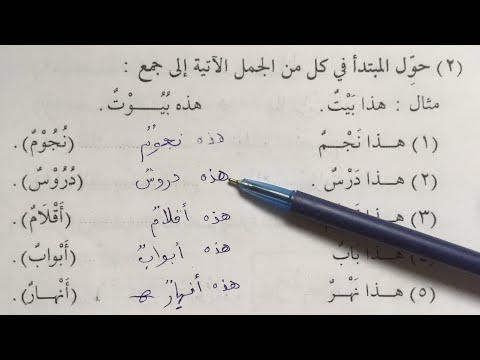 (٢) حوِّل المبتدأ في كل من الجمل الآتية إلى جمع :
مثال : هذا بَيْتٌ. هذه بُيُـــوْتٌ.
(١) هــذا نَجْــمٌ هذه نجومٌ (نُجُوْمٌ).
(٢) هــذا دَرْسٌ . هذه دروسٌ (دُرُوْسٌ).
(٣) هــذا هذه أقلامٌ (أَقْلَامٌ).
هــذا بَابٌ هذه أبوابٌ (أَبْوابٌ).
(٥) هــذا نَهْــرٌ هذه أنهارٌ (أَنْهارٌ).